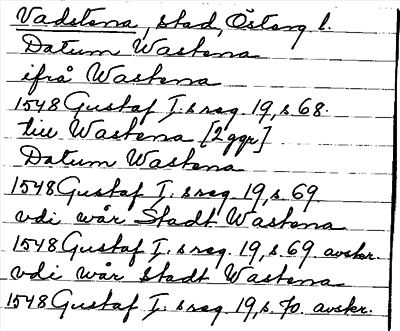 Vadstena, stad, Österg l.
Datum Wastena
ifrå Wastena
1548 Gustaf I:s reg 19, s 68.
till Wastena [2 ggr]
Datum Wastena
1548 Gustaf I:s reg 19, s 69
vdi wår Stadt Wastena
1548 Gustaf I:s reg 19, s 69 avskr.
vdi wår stadt Wastena
1548 Gustaf I:s reg 19, s 70. avskr.